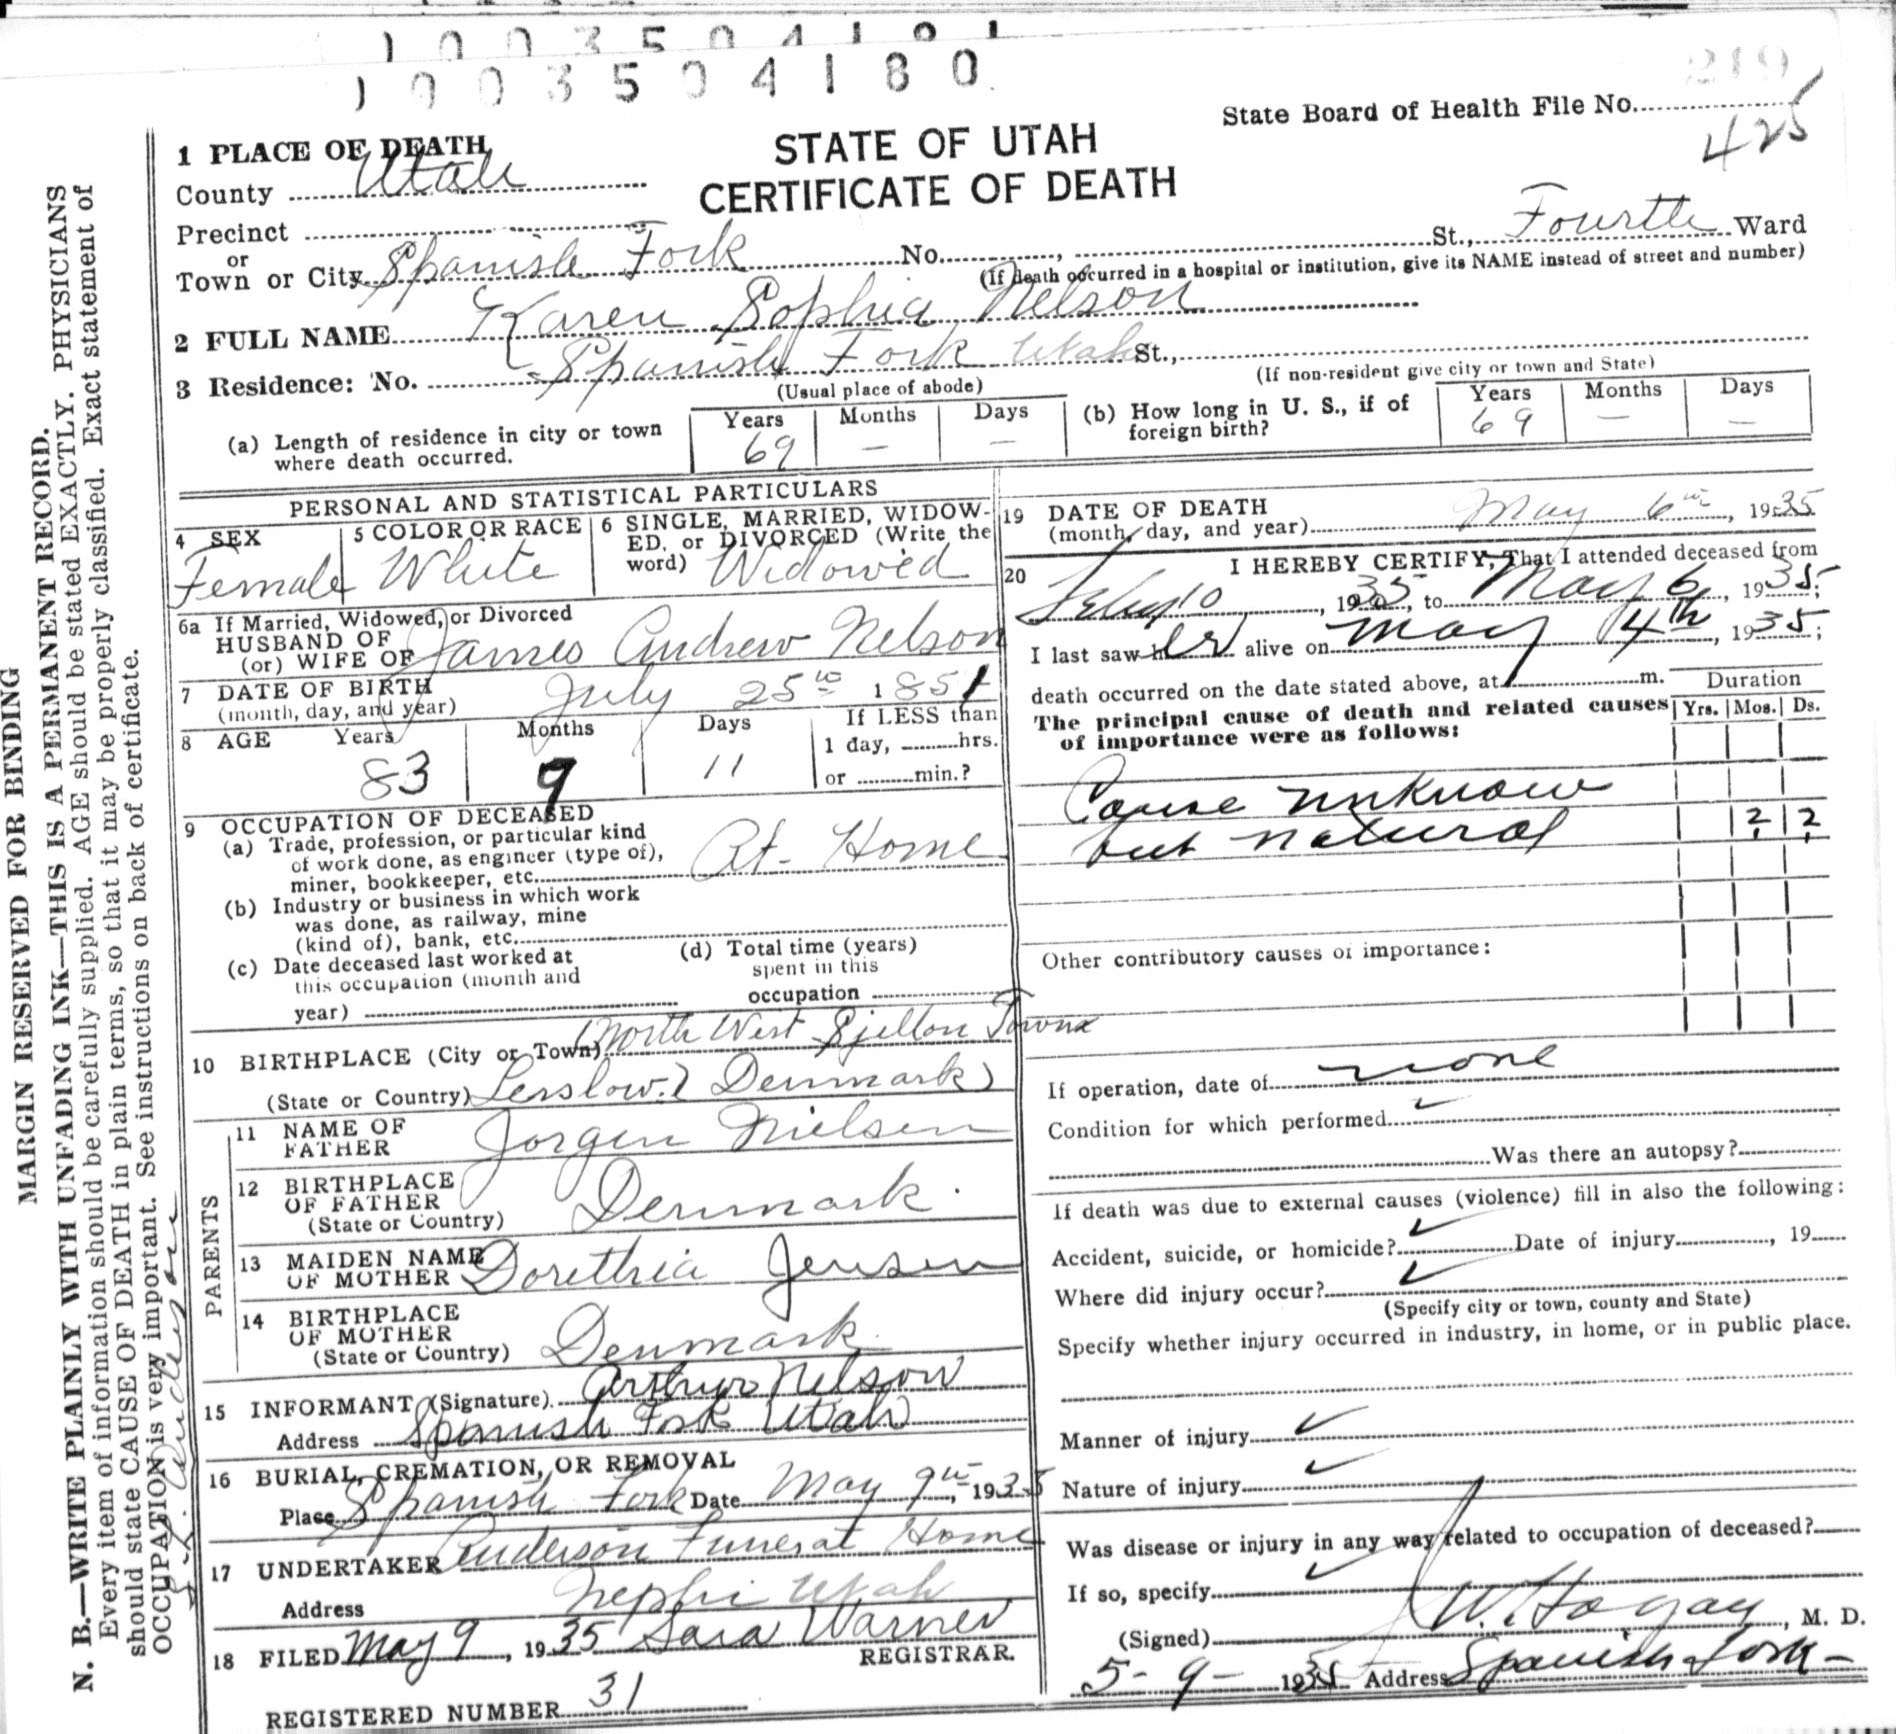 1003504180
State Board of Health File No.
219
425
STATE OF UTAH
CERTIFICATE OF DEATH
1 PLACE OF DEATH
County Utah
Precinct
or
Town or City Spanish Fork No. , St., Fourth Ward
(If death occurred in a hospital or institution, give its NAME instead of street and number)
2 FULL NAME Karen Sophia Nelson
3 Residence: No. Spanish Fork Utah St.,
(Usual place of abode)
(If non-resident give city or town and State)
(a) Length of residence in city or town where death occurred.
Years Months Days
69 — —
(b) How long in U. S., if of foreign birth?
Years Months Days
69 — —
PERSONAL AND STATISTICAL PARTICULARS
4 SEX
Female
5 COLOR OR RACE
White
6 SINGLE, MARRIED, WIDOW-
ED, or DIVORCED (Write the
word) Widowed
6a If Married, Widowed, or Divorced
HUSBAND OF
(or) WIFE OF James Andrew Nelson
7 DATE OF BIRTH
(month, day, and year) July 25th 1851
8 AGE
Years Months Days
83 9 11
If LESS than
1 day, hrs.
or min.?
9 OCCUPATION OF DECEASED
(a) Trade, profession, or particular kind
of work done, as engineer (type of),
miner, bookkeeper, etc. At Home
(b) Industry or business in which work
was done, as railway, mine
(kind of), bank, etc.
(c) Date deceased last worked at
this occupation (month and
year)
(d) Total time (years)
spent in this
occupation
10 BIRTHPLACE (City or Town) North West
(State or Country) Denmark
PARENTS
11 NAME OF
FATHER Jorgen Nielsen
12 BIRTHPLACE
OF FATHER
(State or Country) Denmark.
13 MAIDEN NAME
OF MOTHER Dorethia Jensen
14 BIRTHPLACE
OF MOTHER
(State or Country) Denmark
15 INFORMANT (Signature) Arthur Nelson
Address Spanish Fork Utah
16 BURIAL, CREMATION, OR REMOVAL
Place Spanish Fork Date May 9th, 1935
17 UNDERTAKER Anderson Funeral Home
Address Nephi Utah
18 FILED May 9, 1935 Sara Warner
REGISTRAR.
REGISTERED NUMBER 31
19 DATE OF DEATH
(month, day, and year) May 6th, 1935
20 I HEREBY CERTIFY, That I attended deceased from
10, 1935, to May 6, 1935;
I last saw her alive on May 4th, 1935;
death occurred on the date stated above, at m.
Duration
The principal cause of death and related causes
of importance were as follows:
Yrs. Mos. Ds.
Cause unknow
but natural ? ?
Other contributory causes of importance:
If operation, date of none
Condition for which performed
Was there an autopsy?
If death was due to external causes (violence) fill in also the following:
Accident, suicide, or homicide? Date of injury , 19
Where did injury occur?
(Specify city or town, county and State)
Specify whether injury occurred in industry, in home, or in public place.
Manner of injury
Nature of injury
Was disease or injury in any way related to occupation of deceased?
If so, specify
(Signed) , M. D.
5-9- Address Spanish Fork
MARGIN RESERVED FOR BINDING
N. B.—WRITE PLAINLY WITH UNFADING INK—THIS IS A PERMANENT RECORD.
Every item of information should be carefully supplied. AGE should be stated EXACTLY. PHYSICIANS
should state CAUSE OF DEATH in plain terms, so that it may be properly classified. Exact statement of
OCCUPATION is very important. See instructions on back of certificate.